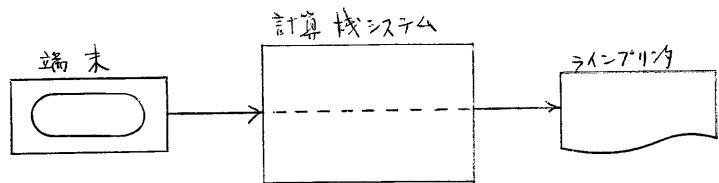 端末
計算機システム
ラインプリンタ